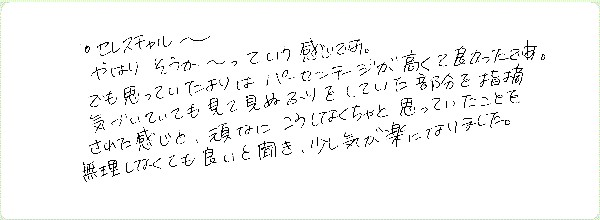 ○ セレスチャル～
やはり そうか～っていう感じです。
でも思っていたよりは パーセンテージが高くて良かったです。
気づいていても見て見ぬふりをしていた部分を指摘
された感じと、頑なに こうしなくちゃと 思っていたことを
無理しなくても良いと聞き、少し気が楽になりました。